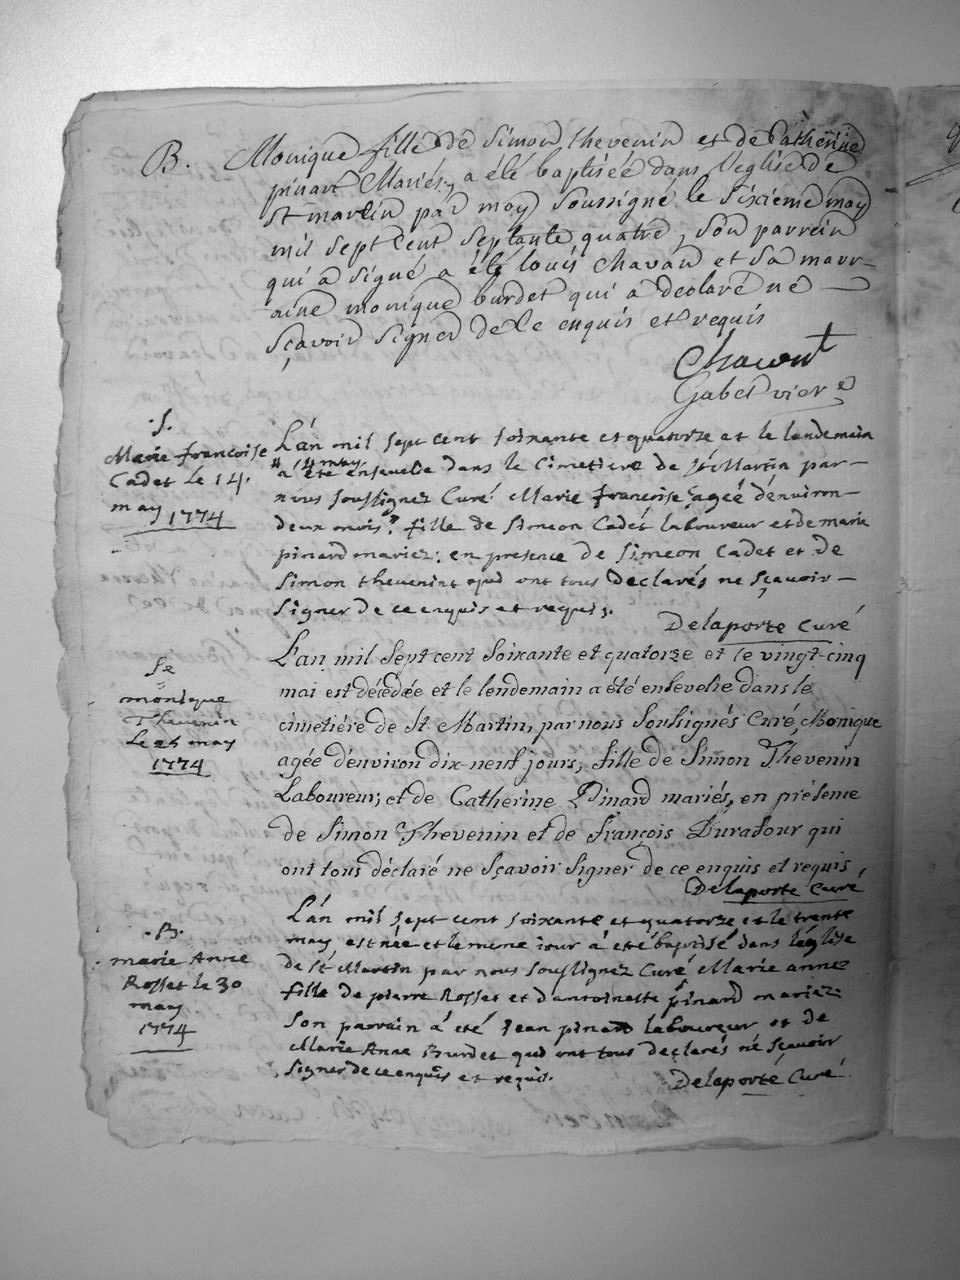 B. Monique fille de Simon thevenin et de Catherine
pinart Mariés, a été baptisée dans l'eglise de
st martin par moy soussigné le sixieme may
mil sept cent septante quatre, son parrein
qui a signé a été louis Chavan et sa marr-
aine monique burdet qui a declaré ne
sçavoir signer de ce enquis et requis
Chavan
Gabet vicre
.S.
Marie francoise
Cadet le 14.
may 1774
L'an mil sept cent soixante et quatorze et le lendemain
14 may
a été ensevelie dans le Cimetiere de st Martin par
nous soussignez Curé Marie francoise agéé d'environ
deux mois, fille de simeon Cadet laboureur et de marie
pinard mariez; en presence de simeon Cadet et de
simon thevenin qui ont tous declarés ne sçavoir
signer de ce enquis et requis.
Delaporte Curé
Se
monique
Thevenin
le 26 may
1774
L'an mil sept cent soixante et quatorze et le vingt-cinq
mai est décédée et le lendemain a été ensevelie dans le
cimetiére de St Martin, par nous soussignés Curé, Monique
agée d'environ dix-neuf jours, fille de Simon Thevenin
Laboureur, et de Catherine Pinard mariés, en présence
de Simon Thevenin et de François Duratour qui
ont tous déclaré ne sçavoir signer de ce enquis et requis
Delaporte Curé
.B.
marie Anne
Rosset le 30
may
1774
L'an mil sept cent soixante et quatorze et le trente
may est née et le meme iour à été baptisé dans léglise
de st Martin par nous soussignez Curé Marie anne
fille de pierre Rosset et d'antoinette pinard mariez;
son parrain à été Jean pinard laboureur et de
Marie Anne Burdet qui ont tous declarés né sçavoir
signer de ce enquis et requis.
Delaporte Curé